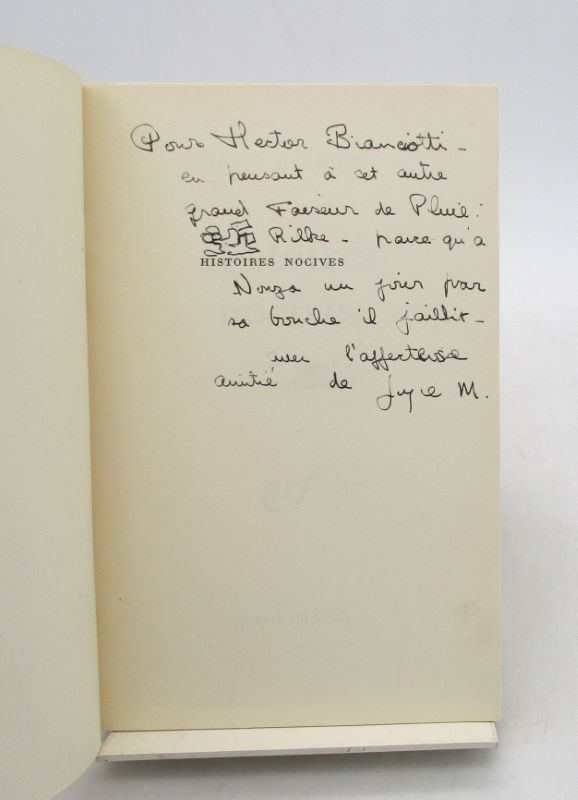 Pour Hector Bianciotti -
en pensant à cet autre
grand Faiseur de Pluie :
Rilke - parce qu'a
HISTOIRES NOCIVES
Nonza un jour par
sa bouche il jaillit -
avec l'affectueuse
amitié de Joyce M.
nrf